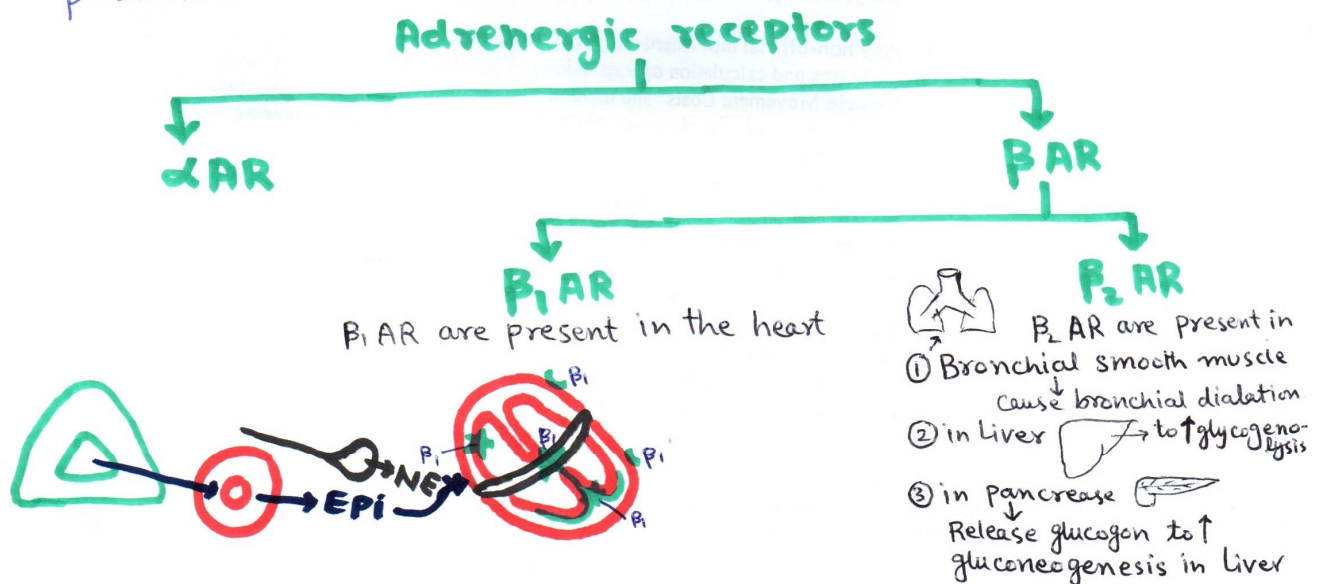 Adrenergic receptors
αAR
βAR
β₁ AR
β₂ AR
β₁ AR are present in the heart
β₂ AR are present in
① Bronchial smooth muscle
cause bronchial dialation
② in Liver
to ↑ glycogeno-
lysis
③ in pancrease
Release glucogon to ↑
gluconeogenesis in Liver
β₁
β₁
β₁
β₁
β₁
NE
EPi